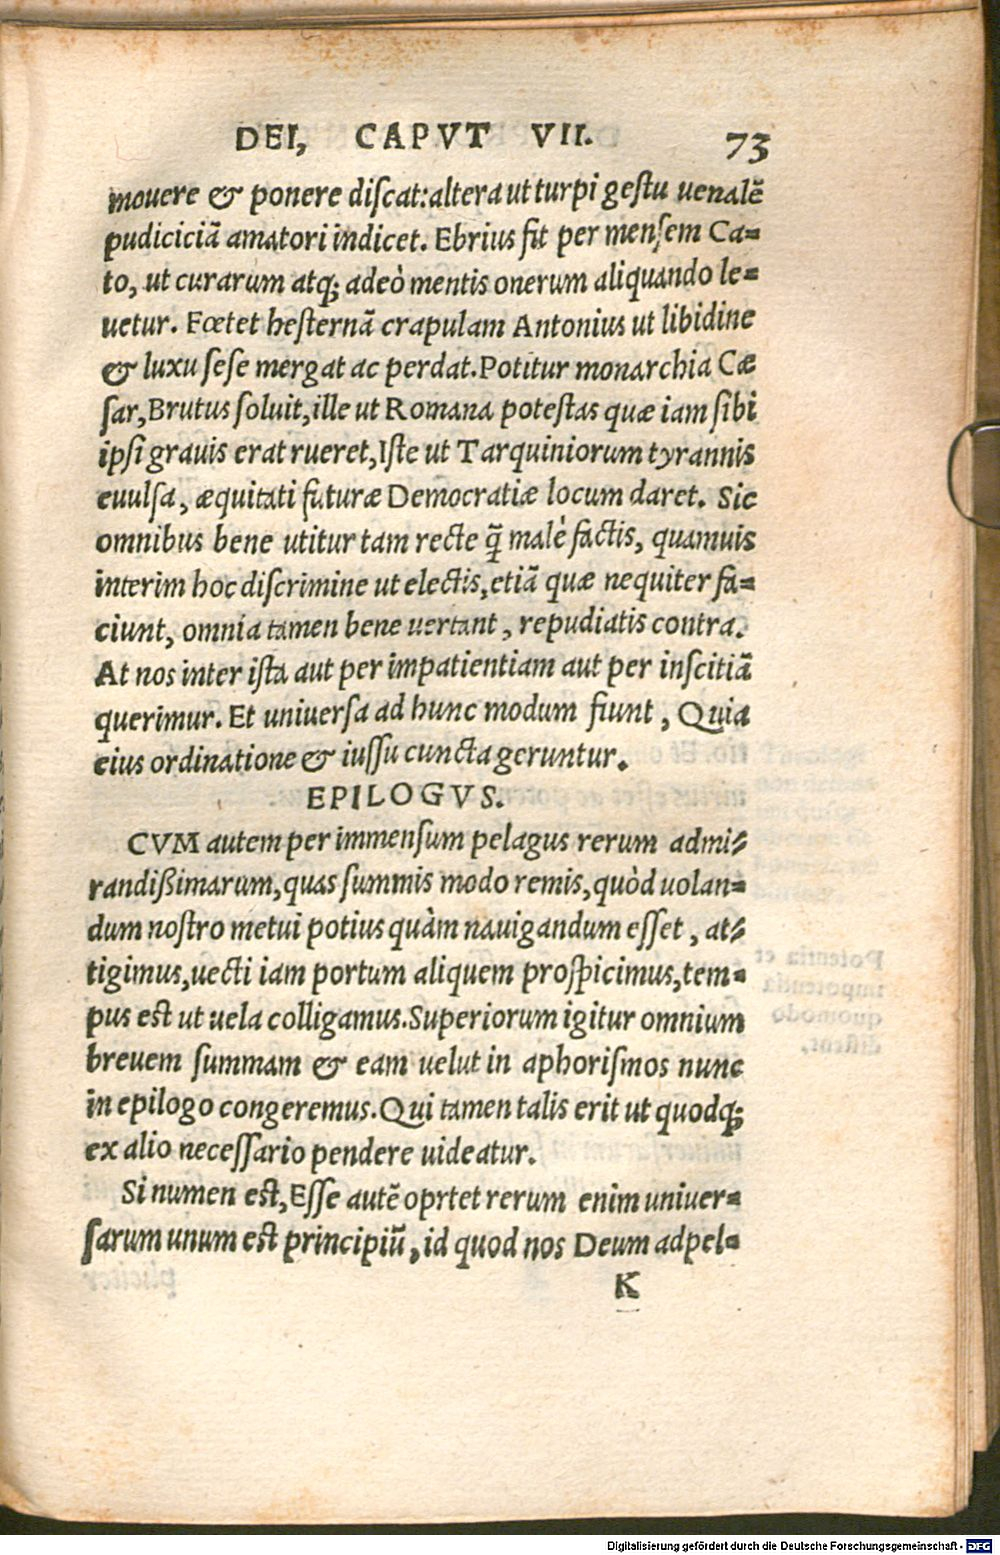 DEI, CAPVT VII. 73
mouere & ponere discat: altera ut turpi gestu uenalẽ
pudiciciã amatori indicet. Ebrius fit per mensem Ca-
to, ut curarum atq; adeò mentis onerum aliquando le-
uetur. Fœtet hesternã crapulam Antonius ut libidine
& luxu sese mergat ac perdat. Potitur monarchia Cæ
sar, Brutus soluit, ille ut Romana potestas quæ iam sibi
ipsi grauis erat rueret, Iste ut Tarquiniorum tyrannis
euulsa, æquitati futuræ Democratiæ locum daret. Sic
omnibus bene utitur tam recte q̃ malè factis, quamuis
interim hoc discrimine ut electis, etiã quæ nequiter fa-
ciunt, omnia tamen bene uertant, repudiatis contra.
At nos inter ista aut per impatientiam aut per inscitiã
querimur. Et uniuersa ad hunc modum fiunt, Quia
eius ordinatione & iussu cuncta geruntur.
EPILOGVS.
CVM autem per immensum pelagus rerum admi-
randißimarum, quas summis modo remis, quòd uolan-
dum nostro metui potius quàm nauigandum esset, at-
tigimus, uecti iam portum aliquem prospicimus, tem-
pus est ut uela colligamus. Superiorum igitur omnium
breuem summam & eam uelut in aphorismos nunc
in epilogo congeremus. Qui tamen talis erit ut quodq;
ex alio necessario pendere uideatur.
Si numen est, Esse autẽ oprtet rerum enim uniuer-
sarum unum est principiũ, id quod nos Deum adpel-
K
Digitalisierung gefördert durch die Deutsche Forschungsgemeinschaft - DFG